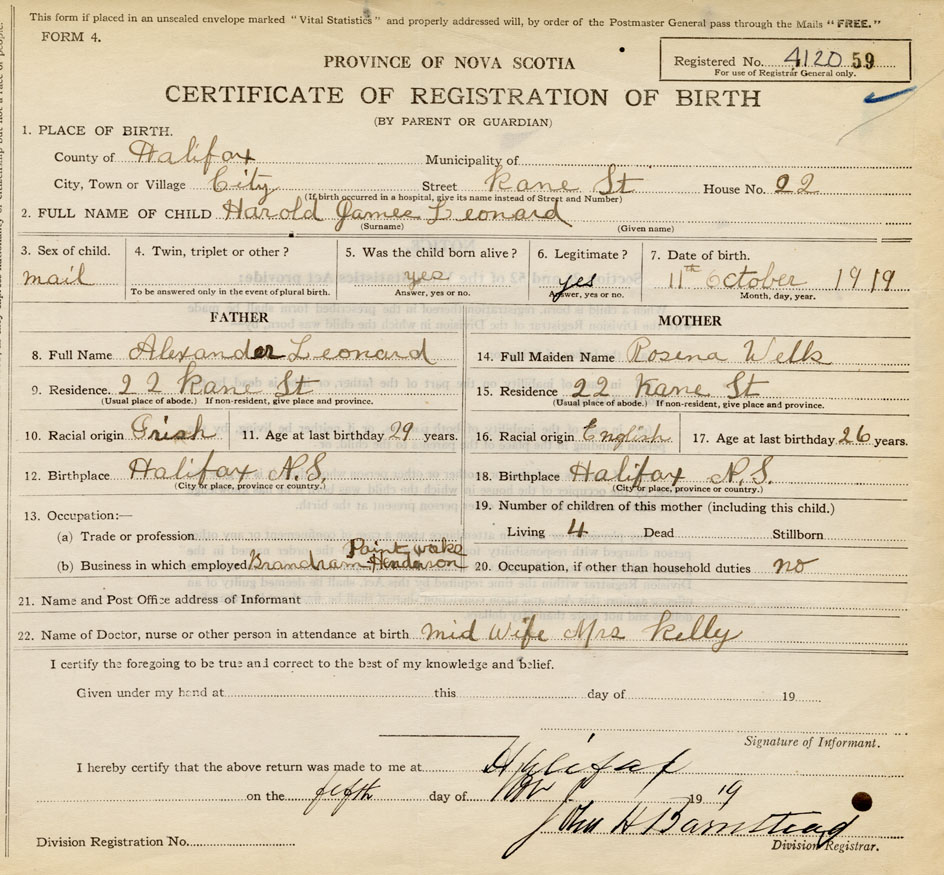 This form if placed in an unsealed envelope marked "Vital Statistics" and properly addressed will, by order of the Postmaster General pass through the Mails "FREE."
FORM 4.
Registered No. 4120 59
For use of Registrar General only.
PROVINCE OF NOVA SCOTIA
CERTIFICATE OF REGISTRATION OF BIRTH
(BY PARENT OR GUARDIAN)
1. PLACE OF BIRTH.
County of Halifax Municipality of
City, Town or Village City Street Kane St House No. 22
(If birth occurred in a hospital, give its name instead of Street and Number)
2. FULL NAME OF CHILD Harold James Leonard
(Surname) (Given name)
3. Sex of child. 4. Twin, triplet or other? 5. Was the child born alive? 6. Legitimate? 7. Date of birth.
mail yes yes 11th October 1919
To be answered only in the event of plural birth. Answer, yes or no. Answer, yes or no. Month, day, year.
FATHER
8. Full Name Alexander Leonard
9. Residence. 22 Kane St
(Usual place of abode.) If non-resident, give place and province.
10. Racial origin Irish 11. Age at last birthday 29 years.
12. Birthplace Halifax N.S.
(City or place, province or country.)
13. Occupation:—
(a) Trade or profession
Paint
(b) Business in which employed Brandram Henderson
MOTHER
14. Full Maiden Name Rosena Wells
15. Residence 22 Kane St
(Usual place of abode.) If non-resident, give place and province.
16. Racial origin English 17. Age at last birthday 26 years.
18. Birthplace Halifax N.S.
(City or place, province or country.)
19. Number of children of this mother (including this child.)
Living 4 Dead Stillborn
20. Occupation, if other than household duties no
21. Name and Post Office address of Informant
22. Name of Doctor, nurse or other person in attendance at birth mid Wife Mrs Kelly
I certify the foregoing to be true and correct to the best of my knowledge and belief.
Given under my hand at this day of 19
Signature of Informant.
I hereby certify that the above return was made to me at Halifax
on the fifth day of 1919
John H Barnstead
Division Registration No. Division Registrar.